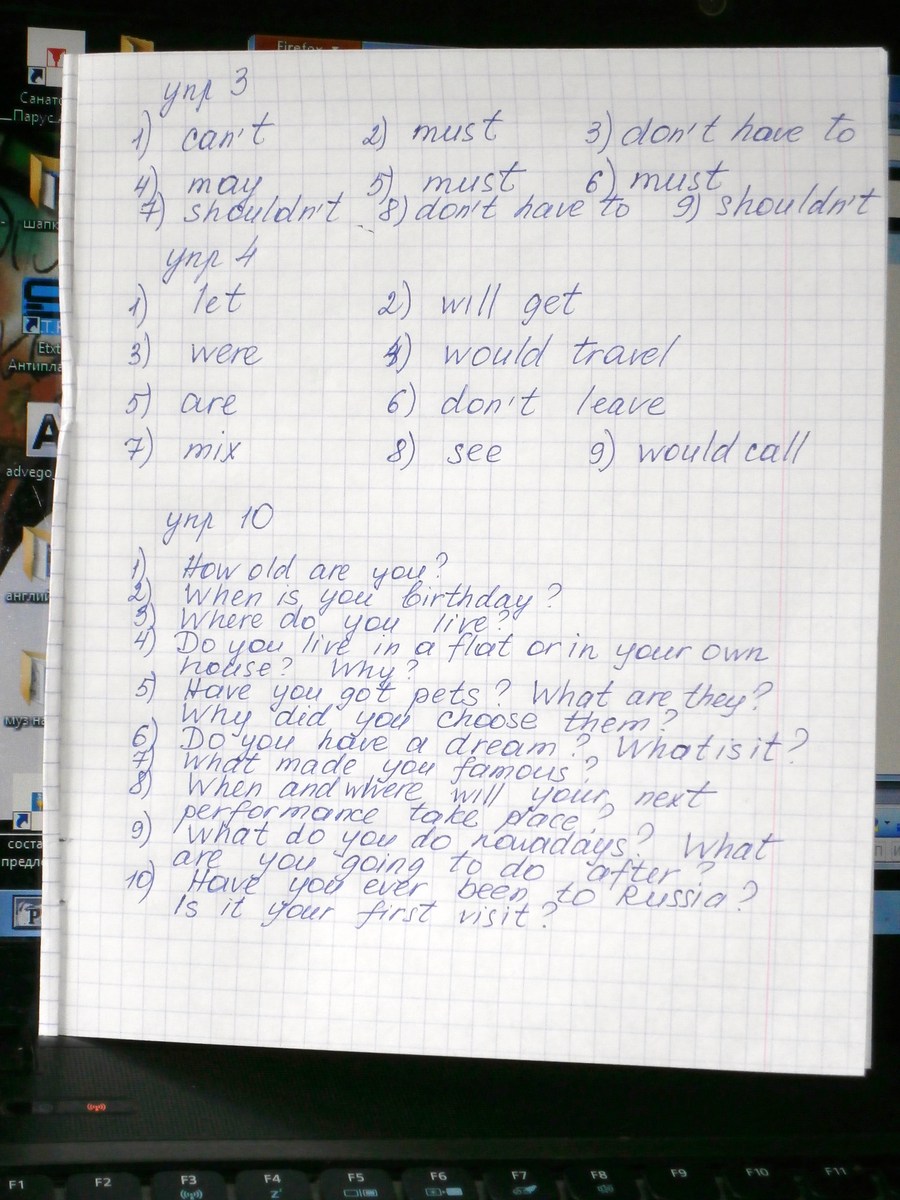 Firefox
Санато
Парус.
шапк
Etxt
Антипла
A
advego
англий
муз на
соста
предло
упр 3
1) can't 2) must 3) don't have to
4) may 5) must 6) must
7) shouldn't 8) don't have to 9) shouldn't
упр 4
1) let 2) will get
3) were 4) would travel
5) are 6) don't leave
7) mix 8) see 9) would call
упр 10
1) How old are you?
2) When is you birthday?
3) Where do you live?
4) Do you live in a flat or in your own
house? Why?
5) Have you got pets? What are they?
Why did you choose them?
6) Do you have a dream? What is it?
7) What made you famous?
8) When and where will your next
performance take place?
9) What do you do nowadays? What
are you going to do after?
10) Have you ever been to Russia?
Is it your first visit?
F1 F2 F3 F4 F5 F6 F7 F8 F9 F10 F11